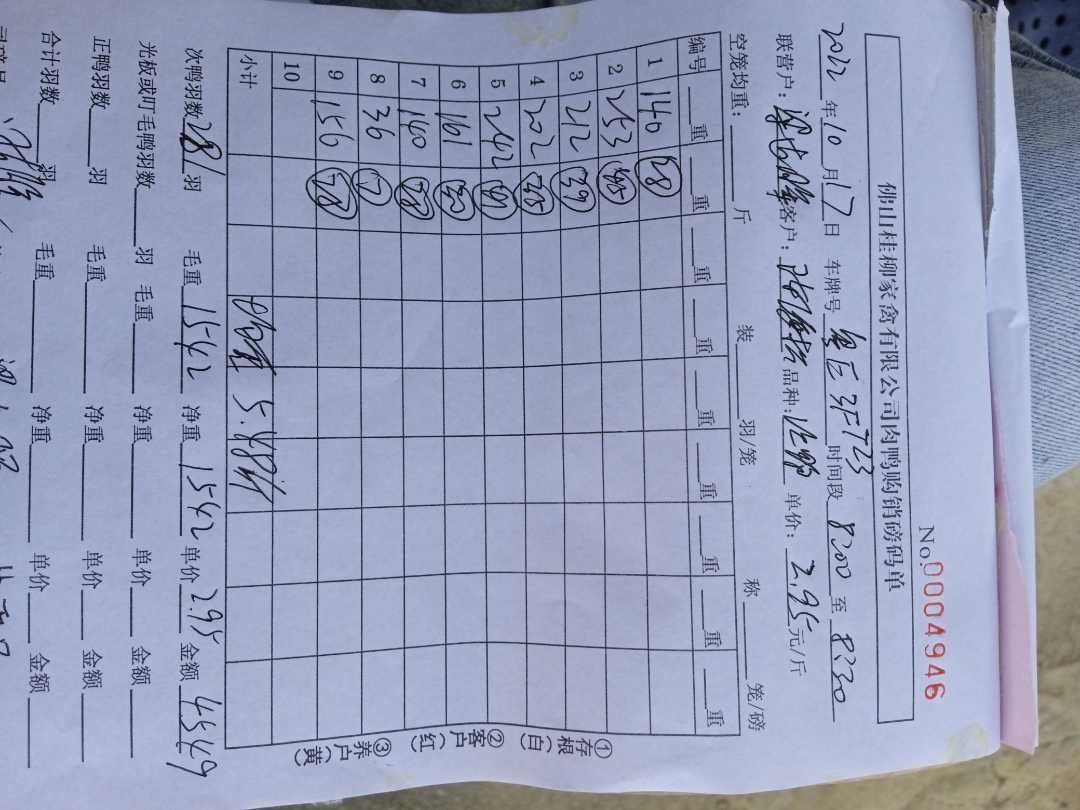 No.0004946
佛山桂柳家禽有限公司肉鸭购销磅码单
2022年10月17日 车牌号 粤E3F723 时间段 8:00 至 8:30
联营户: 客户: 品种: 单价: 2.95元/斤
空笼均重: 斤 装 羽/笼 称 笼/磅
编号 重 重 重 重 重 重 重 重 重
1 140
2 253
3 212 39
4 202
5 242
6 161 30
7 140 28
8 36 7
9 156 28
10
小计 均重 5.48斤
①存根(白) ②客户(红) ③养户(黄)
次鸭羽数 281 羽 毛重 1542 净重 1542 单价 2.95 金额 4549
光板或叮毛鸭羽数 羽 毛重 净重 单价 金额
正鸭羽数 羽 毛重 净重 单价 金额
合计羽数 羽 毛重 净重 单价 金额